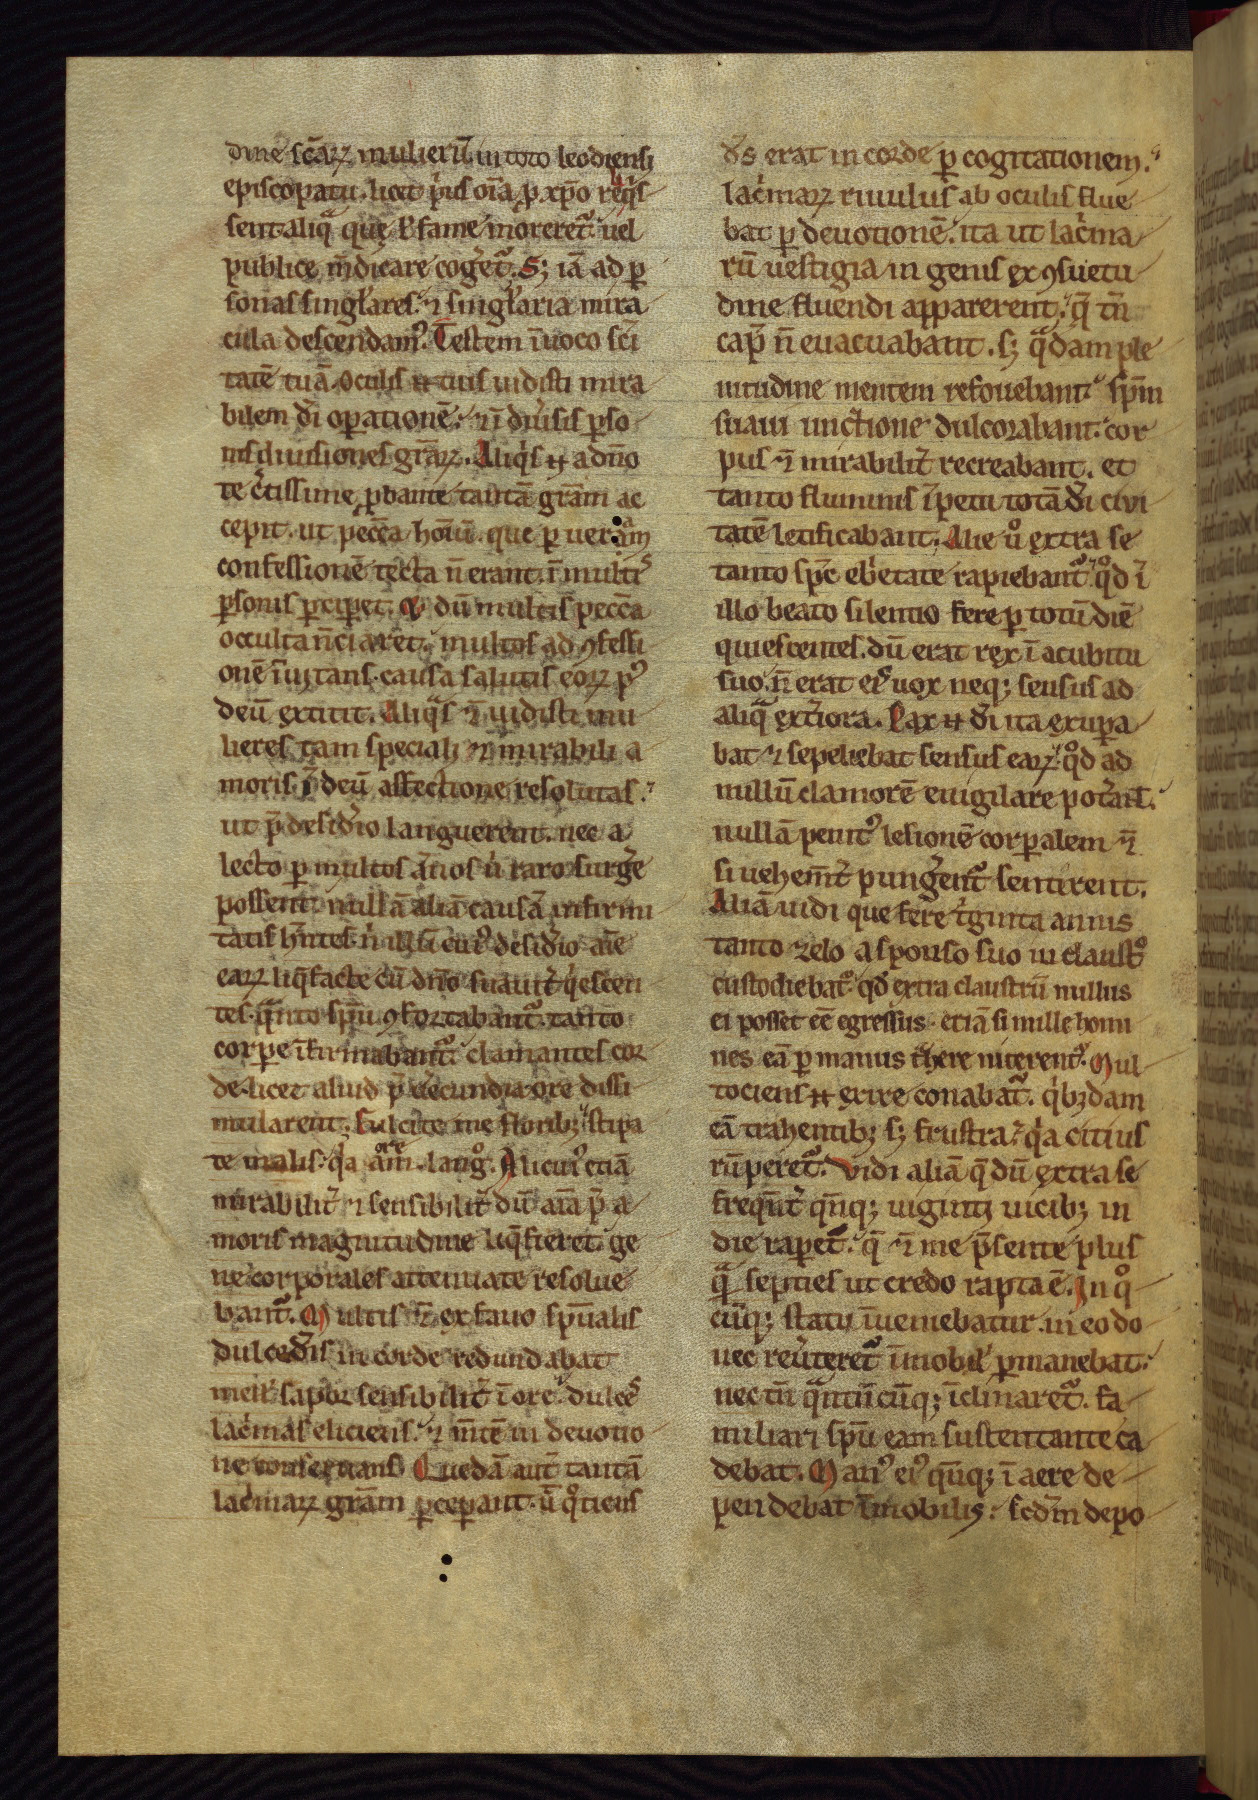 dine sc̄aꝝ mulieꝝ in toto leodiensi
episcopatu. licet p̓us oīa ꝓ xp̄o reliq̓s
sent. aliq̄ queꝫ l̓ fame morereť. uel
publice m̄dicare cogeť. Sꝫ iā ad ꝑ
sonas singl̓ares. ⁊ singl̓aria mira
cula descendam᷒. Testem īuoco sc̄i
tatē tuā. Oculis n̄ tuis uidisti mira
bilem dī operationē. ⁊ ī diu̓sis ꝑso
nis diuisiones gr̄aꝝ. Aliq̓s n̄ a dn̄o
te c̓tissime ꝓbante tantā gr̄am ac
cepit. ut pecc̄a hoīū. que ꝑ ueram
confessionē tecta n̄ erant. ī mult᷒
ꝑsonis ꝑciꝑet. ⁊ dū multis pecc̄a
occulta n̄ciaret. multos ad ꝯfessi
onē īuitans. causa salutis eoꝝ p᷒
deū extitit. Aliq̄s ⁊ uidisti mu
lieres tam speciali ⁊ mirabili a
moris ī deū affectione resolutas.
ut p̄ desid̓io languerent. nec a
lecto ꝑ multos ānos n̓ raro surg̓e
possent. nullā aliā causā infirmi
tatis hn̄tes. n̓ illū cui᷒ desid̓io aīe
eaꝝ liq̄facte cū dn̄o suauit̓ q̓escen
tes. q̄nto sp̄u ꝯfortabanť. tanto
corꝑe īfirmabanť. clamantes cor
de. licet aliud p̄ uerecundia ore dissi
mularent. Fulcite me floribꝫ stipa
te malis. q̓a am̄e lang᷒. Alicui᷒ etiā
mirabilit̓ ⁊ sensibilit̓ dū aīa p̄ a
moris magnitudine liq̄fieret. ge
ne corporales attenuate resolue
banť. Multis ⁊ ex fauo sp̄ualis
dulcedīs in corde redundabat
mell̓ sapor sensibilit̓ ī ore. dulc᷒
lac̓mas eliciens. ⁊ m̄tē in deuotio
ne conseruans. Quedā aut̄ tantā
lac̓maꝝ gr̄am ꝑceꝑant. ut q̊tiens
d̄s erat in corde ꝑ cogitationem.
lac̓maꝝ riuulus ab oculis flue
bat ꝑ deuotionē. ita ut lac̓ma
rū uestigia in genis ex ꝯsuetu
dine fluendi apparerent. q̄ tn̄
cap̄ n̄ euacuabant. sꝫ q̄dam ple
nitudine mentem refouebant. sp̄m
suaui unctione dulcorabant. cor
pus ⁊ mirabilit̓ recreabant. et
tanto fluminis īpetu totā dī civi
tatē letificabant. Alie u̓o extra se
tanto sp̄c eb̓etate rapiebanť. q̊d ī
illo beato silentio fere ꝑ totū diē
quiescentes. dū erat rex ī acubitu
suo. n̄ erat eis uox neqꝫ sensus ad
aliq̄ ext̓iora. Pax n̄ dī ita exuꝑa
bat ⁊ sepeliebat sensus eaꝝ. q̊d ad
nullū clamorē euigilare pot̓ant.
nullā penit᷒ lesionē corꝑalem ⁊
si uehem̄t̓ pung̓enť sentirent.
Aliā uidi que fere t̓ginta annis
tanto zelo a sponso suo in claust̊
custodiebať. qd̓ extra claustrū nullus
ei posset eē egressus. etiā si mille homi
nes eā ꝑ manus t̓here niterenť. Mul
tociens n̄ exire conabať. q̓bꝫdam
eā trahentibꝫ sꝫ frustra. q̓a citius
rūpereť. Vidi aliā q̄ dū extra se
freq̄nt̓ qn̄qꝫ uiginti uicibꝫ in
die rapeť. q̄ ⁊ me p̄sente plus
q̄ septies ut credo rapta ē. In q̊
cūqꝫ statu īueniebatur. in eo do
nec reu̓tereť īmobil̓ ꝑmanebat.
nec tn̄ q̄ntūcūqꝫ īclinareť. fa
miliari sp̄u eam sustentante ca
debat. Man᷒ ei᷒ qn̄qꝫ ī aere de
pendebat īmobilis. scd̄m depo